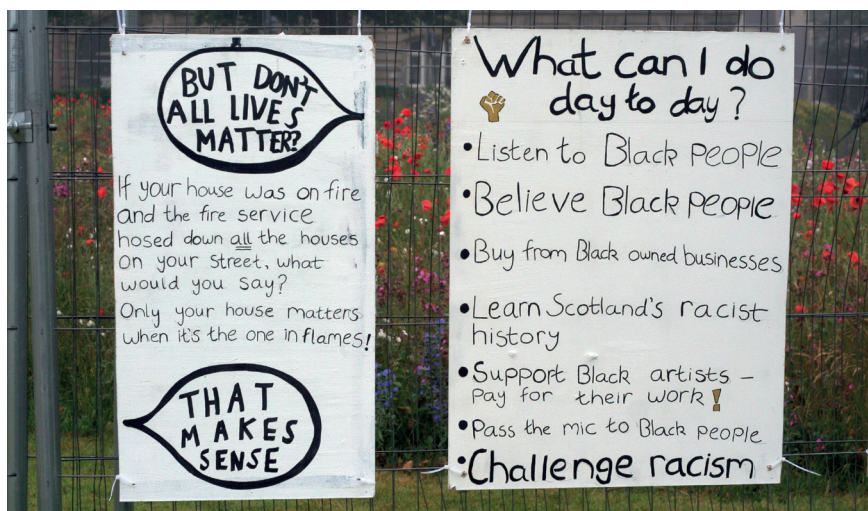 BUT DON'T
ALL LIVES
MATTER?
If your house was on fire
and the fire service
hosed down all the houses
on your street, what
would you say?
Only your house matters
when it's the one in flames!
THAT
MAKES
SENSE
What can I do
day to day?
• Listen to Black PEOPLE
• Believe Black PEOPLE
• Buy from Black owned businesses
• Learn Scotland's racist
history
• Support Black artists –
pay for their work!
• Pass the mic to Black people
• Challenge racism